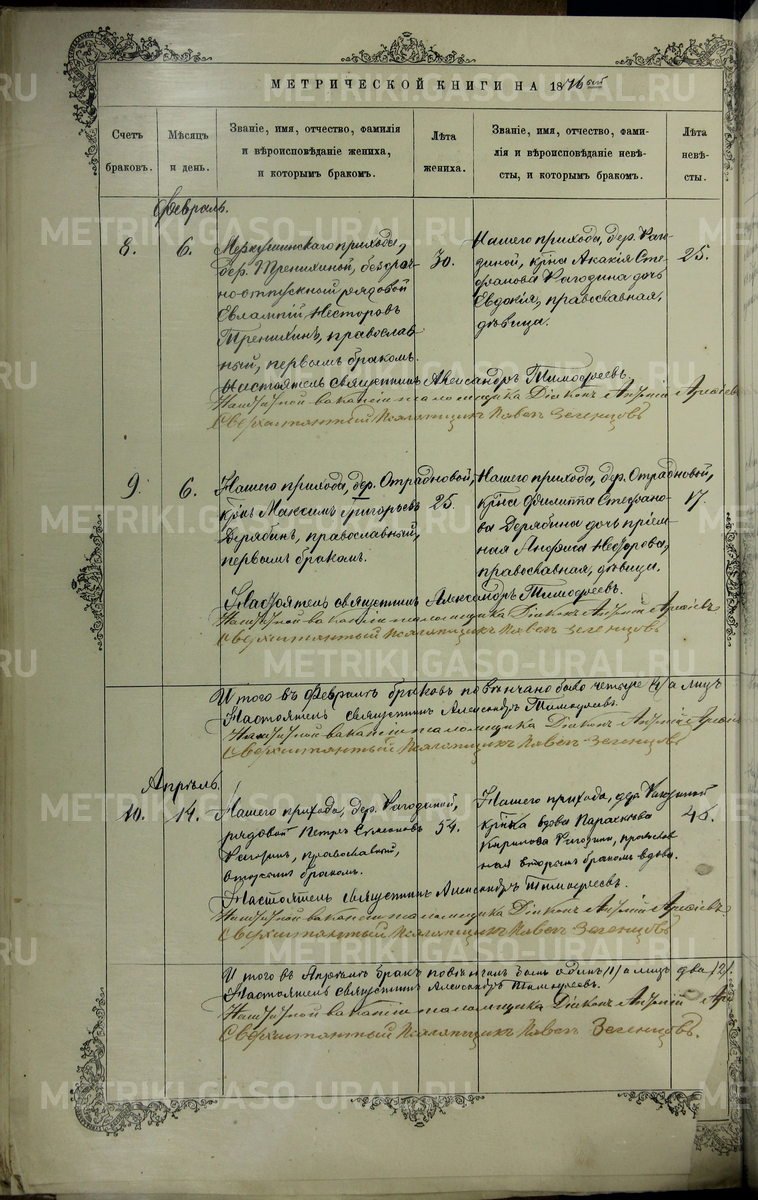 МЕТРИЧЕСКОЙ КНИГИ НА 1876 ой
Счетъ браковъ.
Мѣсяцъ и день.
Званіе, имя, отчество, фамилія
и вѣроисповѣданіе жениха,
и которымъ бракомъ.
Лѣта жениха.
Званіе, имя, отчество, фами-
лія и вѣроисповѣданіе невѣ-
сты, и которымъ бракомъ.
Лѣта невѣ-
сты.
Февраль.
8.
6.
Меркушинскаго прихода,
дер. Тренихиной, безсроч-
ноотпускной рядовой
Евлампій Несторовъ
Тренихинъ, православ-
ный, первымъ бракомъ.
30.
Нашего прихода, дер. Раго-
диной, крна Акакія Сте-
фанова Рагодина дочь
Евдокія, православная,
дѣвица.
25.
Настоятель священникъ Александръ Тимофеевъ.
На штатной вакансіи псаломщика Діаконъ
Сверхштатный Псаломщикъ Павелъ
9.
6.
Нашего прихода, дер. Отрадновой,
кр нъ Максимъ Григорьевъ
Дерябинъ, православный,
первымъ бракомъ.
25.
Нашего прихода, дер. Отрадновой,
крна Филиппа Стефано-
ва Дерябина дочь пріем-
ная Анфиса Федорова,
православная, дѣвица.
17.
Настоятель священникъ Александръ Тимофеевъ.
На штатной вакансіи псаломщика Діаконъ
Сверхштатный Псаломщикъ Павелъ
Итого въ Февралѣ браковъ повѣнчано было четыре (4) а лицъ
Настоятель священникъ Александръ Тимофеевъ.
На штатной вакансіи псаломщика Діаконъ
Сверхштатный Псаломщикъ Павелъ
Апрѣль.
10.
14.
Нашего прихода, дер. Рагодиной,
рядовой Петръ Симеоновъ
православный,
вторымъ бракомъ.
54.
Нашего прихода, дер. Рагодиной
крнка вдова Параскева
Кирилова Рагодина, православ-
ная вторымъ бракомъ вдова.
Настоятель священникъ Александръ Тимофеевъ.
На штатной вакансіи псаломщика Діаконъ
Сверхштатный Псаломщикъ Павелъ
Итого въ Апрѣлѣ бракъ повѣнчанъ былъ одинъ (1) а лицъ два (2).
Настоятель священникъ Александръ Тимофеевъ.
На штатной вакансіи псаломщика Діаконъ
Сверхштатный Псаломщикъ Павелъ
METRIKI.GASO-URAL.RU